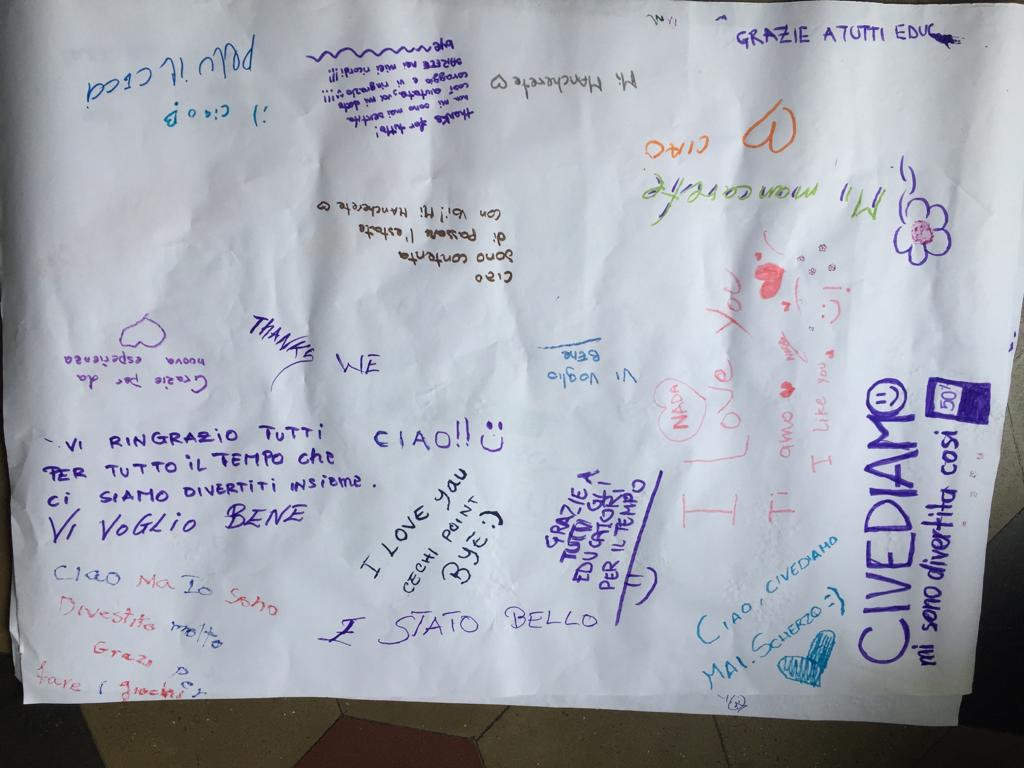 GRAZIE A TUTTI EDUC
il ciao B
thanks for tutto!
non mi sono mai sentita
così aiutata, voi mi date
coraggio e vi ringrazio!!!!
SARETE nei miei ricordi!!!
bye
Mi Mancherete
CIAO
Mi mancarete
CIAO
SONO contenta
di passare l'estate
con voi! Mi Mancherete
Grazie per da
nuova
esperienza
THANKS
WE
VI VOGLIO
BENE
NADA
I Love You
Ti amo
I LIKE YOU
CIVEDIAMO
mi sono divertita così
50%
VI RINGRAZIO TUTTI
PER TUTTO IL TEMPO CHE
CI SIAMO DIVERTITI INSIEME.
VI VOGLIO BENE
CIAO!!
I LOVE YOU
CECHI POINT
BYE:)
GRAZIE A
TUTTI GLI
EDUCATORI
PER IL TEMPO
CIAO, CIVEDIAMO
MAI. SCHERZO:)
Ciao Ma Io Sono
Divestito molto
Grazi per
fare i giochi
E STATO BELLO